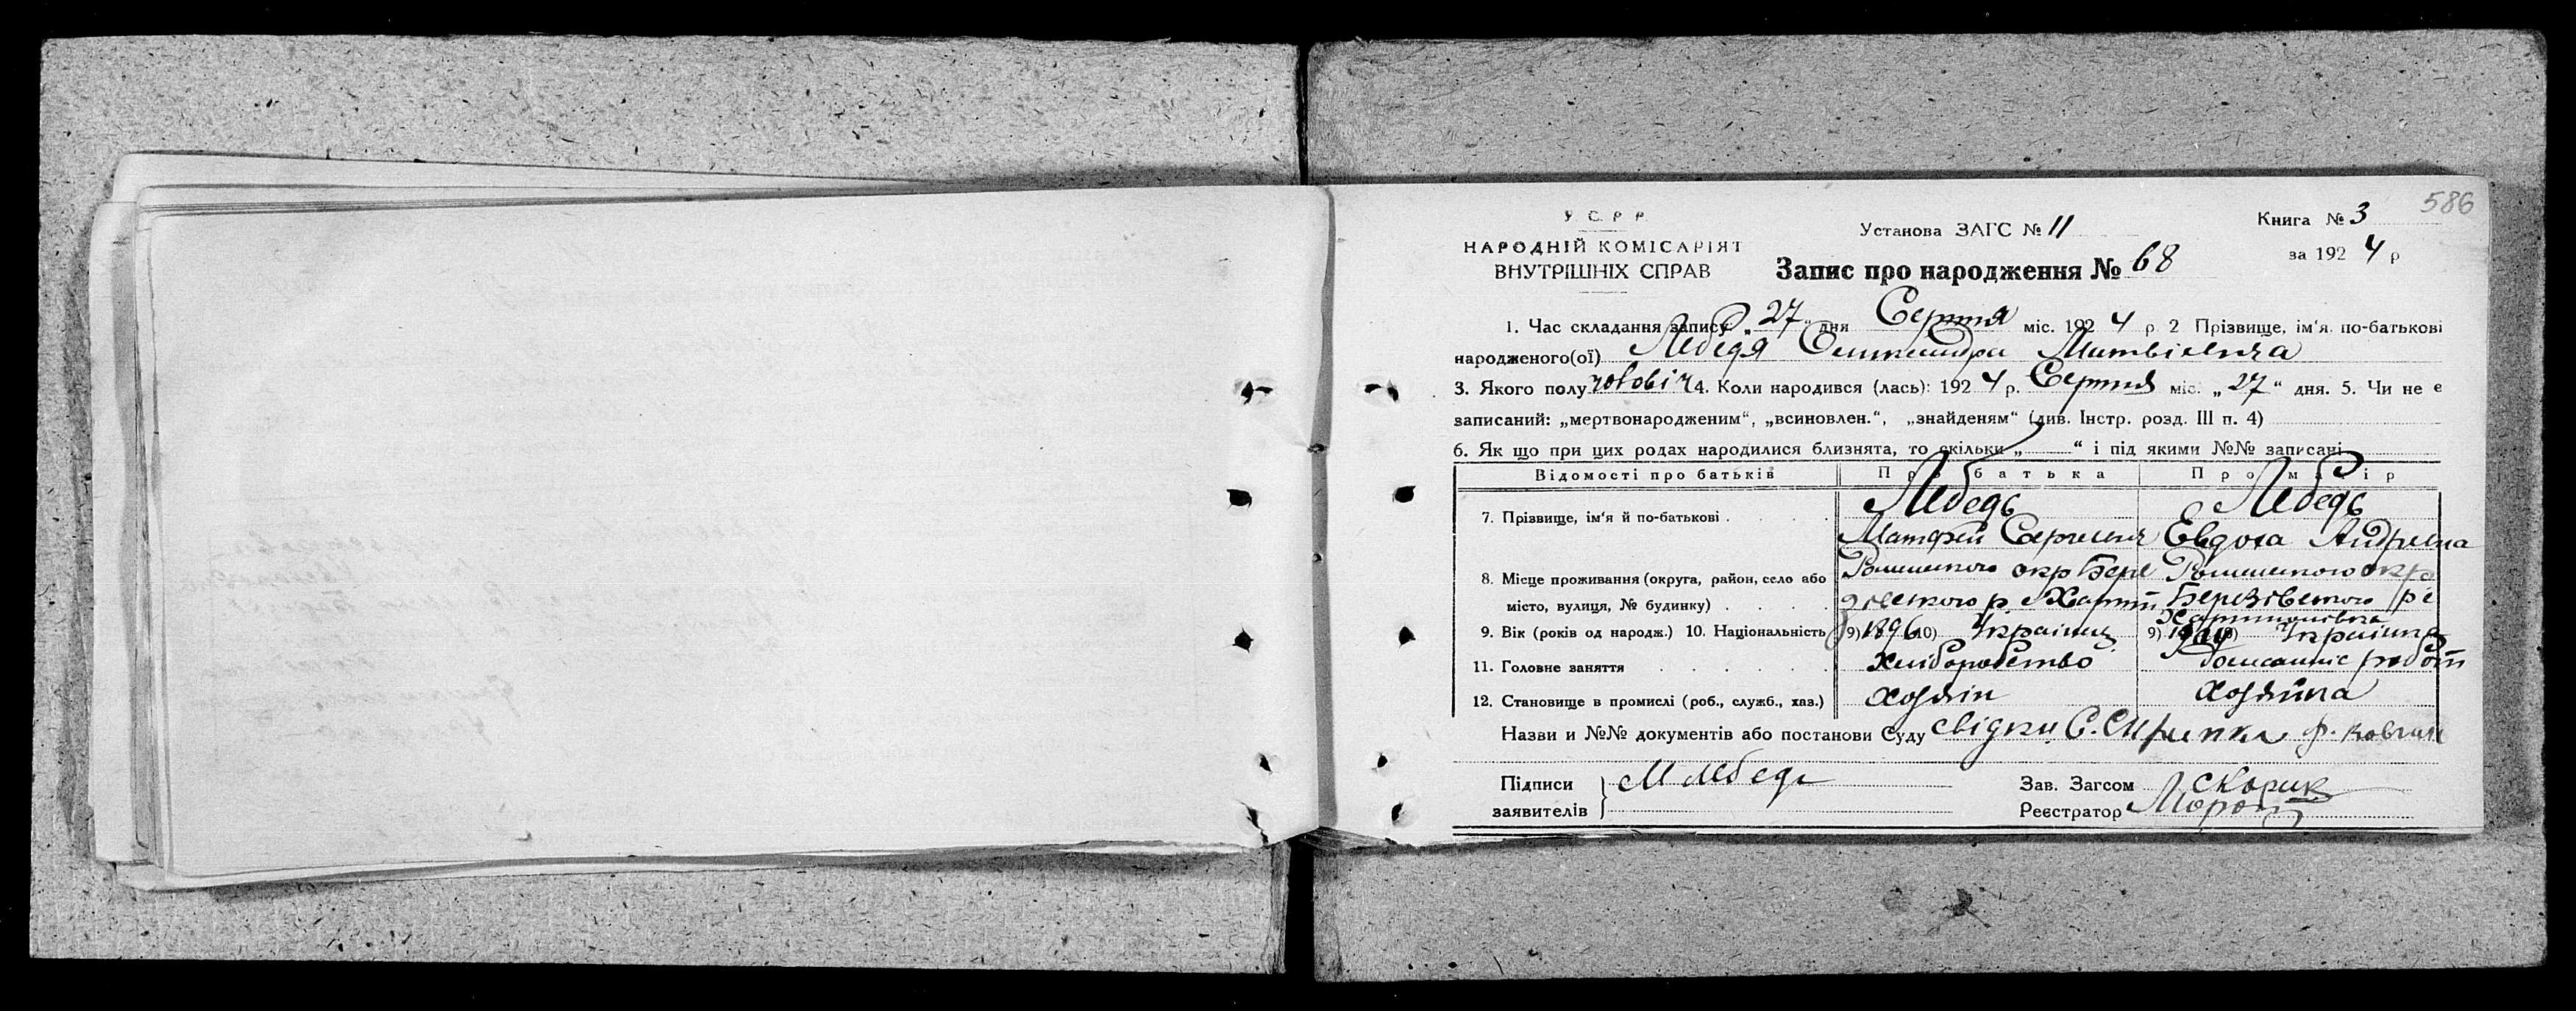 586
У. С. Р. Р.
НАРОДНІЙ КОМІСАРІЯТ
ВНУТРІШНІХ СПРАВ
Установа ЗАГС № 11
Книга № 3
за 1924 р
Запис про народження № 68
1. Час складання запису „27“ дня Серпня міс. 1924 р 2 Прізвище, ім'я по-батькові
народженого(ої) Лебідя Олександра Матвієвича
3. Якого полу чоловіч 4. Коли народився (лась): 1924 р. Серпня міс. „27“ дня. 5. Чи не є
записаний: „мертвонародженим“, „всиновлен.“, „знайденям“ (див. Інстр. розд. III п. 4)
6. Як що при цих родах народилися близнята, то скільки „ “ і під якими №№ записані
Відомості про батьків Про батька Про матір
7. Прізвище, ім'я й по-батькові Лебедь Лебедь
Матфей Сергиевич Евдоха Андріевна
8. Місце проживання (округа, район, село або Роменського окр Бере Роменського окр
місто, вулиця, № будинку) Березівського р с
9. Вік (років од народж.) 10. Національність 9) 1896 10) Українец 9) 10) Українка
11. Головне заняття Хліборобство Домашніе робот
12. Становище в промислі (роб., служб., хаз.) хозяін хозяйка
Назви и №№ документів або постанови Суду свідки С. Ф.
Підписи М Лебедь
заявителів
Зав. Загсом Скорик
Реєстратор Мороз